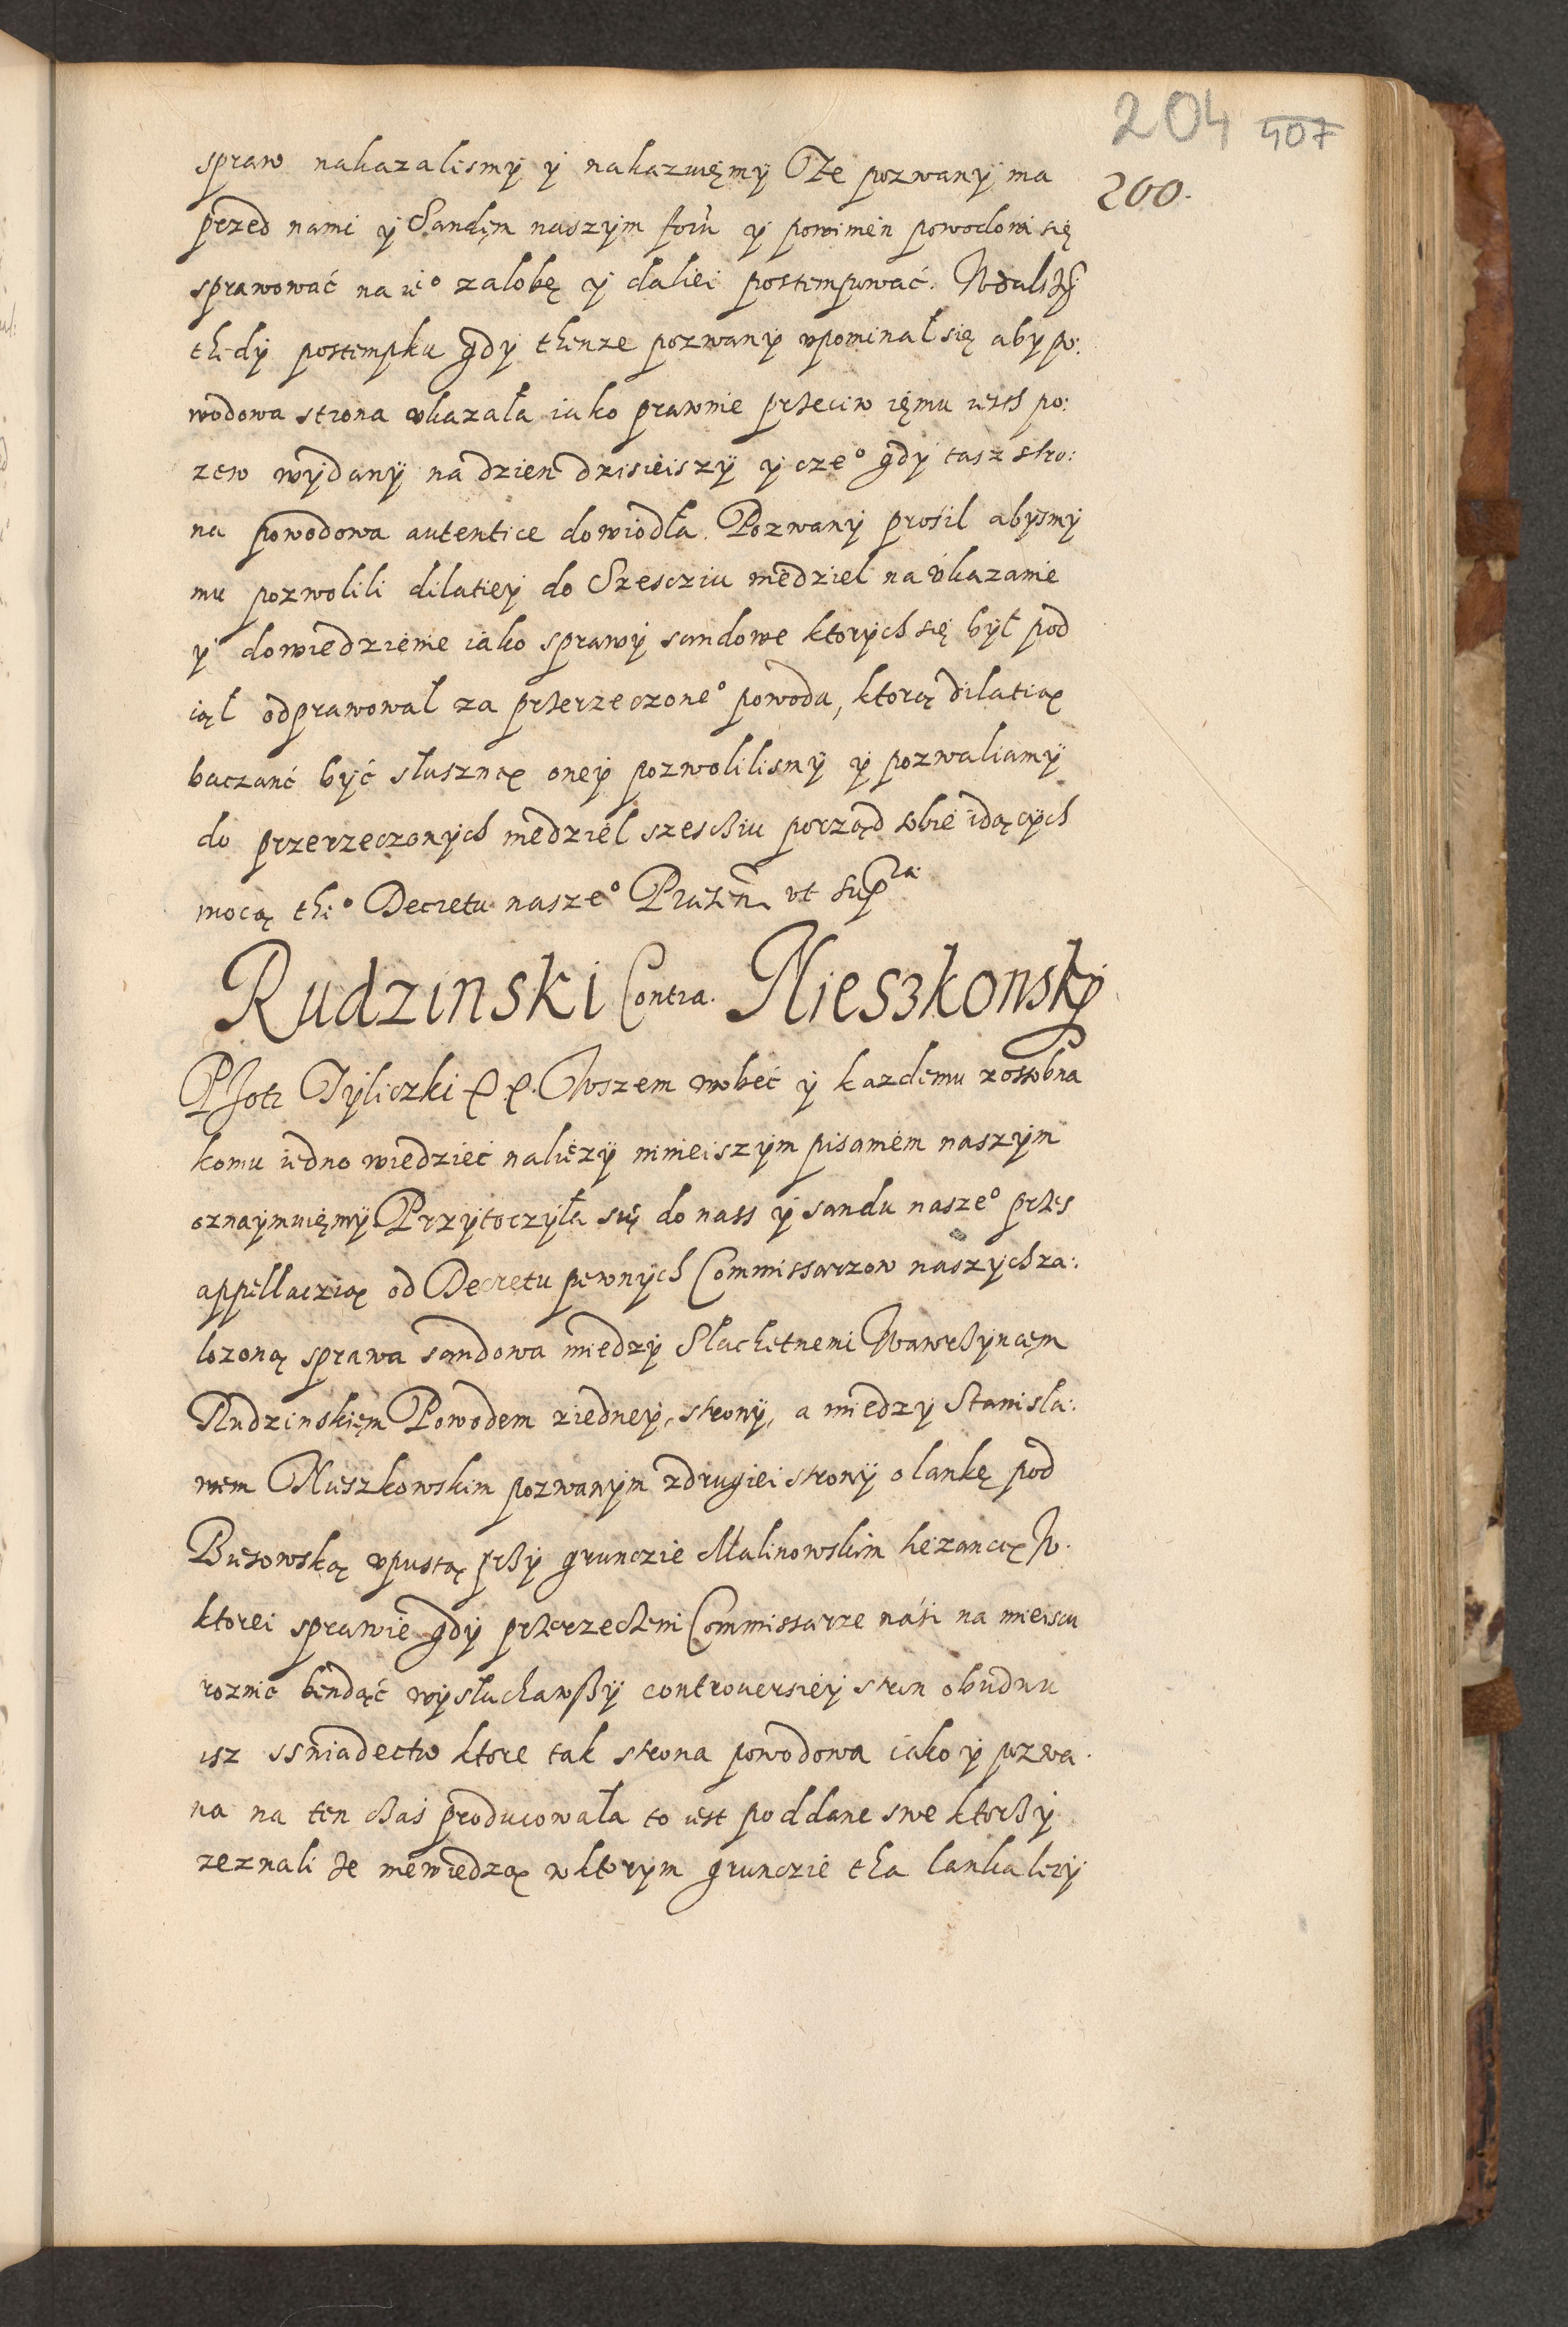 204 407
200.
spraw nakazalismÿ ÿ nakazuięmÿ Że pozwanÿ ma
przed nami ÿ Sandęm naszÿm forũ ÿ powinien powodowi się
sprawować na ie° załobę ÿ daliei postempuwać. Wdalszÿ
thedÿ postempku gdÿ thenze pozwanÿ upominał się abÿ po:
wodowa strona ukazała iako prawnie przeciw ięmu iest po:
zew wÿdanÿ na dzien dzisieiszÿ ÿ cze° gdÿ tasz stro:
na powodowa autentice dowiodła. Pozwanÿ prosił abÿsmÿ
mu pozwolili dilatieÿ do Szescziu niedziel na ukazanie
ÿ dowiedzienie iako sprawÿ sandowe ktorÿch się bÿł pod
iął odprawował za przerzeczone° powoda, ktorą dilatią
baczanć bÿć słuszną oneÿ pozwolilismÿ ÿ pozwaliamÿ
do przerzeczonÿch niedziel szescziu porząd sobie idącÿch
mocą the° Decretu nasze° Præsen. ut supra
Rudzinski Contra. Nieszkowskÿ
PJotr Tÿliczki Wszem wobeć ÿ kazdemu zossobna
komu iedno wiedzieć naliezÿ ninieiszÿm pisaniem naszÿm
oznaÿmuięmÿ Przÿtoczÿła się do nass ÿ sandu nasze° przes
appellaczią od Decretu pewnÿch Commissarzow naszÿch za:
lozoną sprawa sandowa miedzÿ Słachetnemi Wawrzÿncęm
Rudzinskięm Powodem ziedneÿ strony, a miedzÿ Stanisła:
wem Nieszkowskim pozwanÿm zdrugiei stronÿ o lankę pod
upustą przÿ grunczie Malinowskim liezancą W.
ktorei sprawie gdÿ przerzeczeni Commissarze nasi na mieiscu
roznic bendąć wÿsłuchawszÿ controuersieÿ stron obudwu
isz sswiadectw ktore tak strona powodowa iako ÿ pozwa:
na na ten czas producowała to iest poddane swe ktorzÿ
zeznali że niewiedzą wktorÿm grunczie tha lanka lezÿ